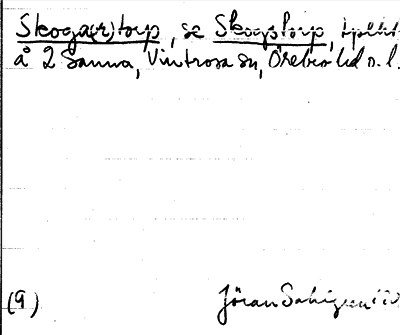 Skoga(r)torp, se Skogstorp, tplht
å 2 Sanna, Vintrosa sn, Örebro hd o. l.
(9) Jöran Sahlgren